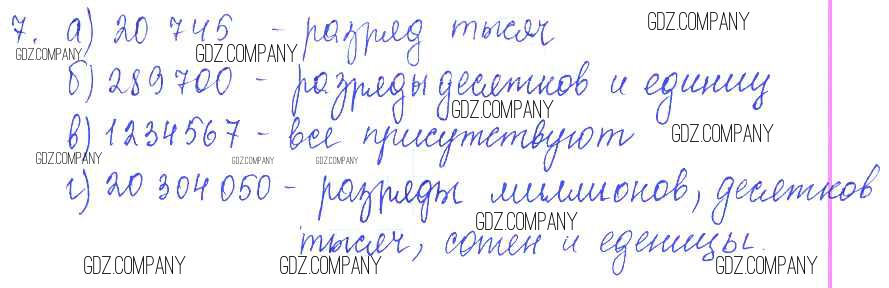 7. а) 20 745 - разряд тысяч
б) 289700 - разряды десятков и единиц
в) 1234567 - все присутствуют
г) 20 304 050 - разряды миллионов, десятков
тысяч, сотен и еденицы.
GDZ.COMPANY
GDZ.COMPANY
GDZ.COMPANY
GDZ.COMPANY
GDZ.COMPANY
GDZ.COMPANY
GDZ.COMPANY
GDZ.COMPANY
GDZ.COMPANY
GDZ.COMPANY
GDZ.COMPANY
GDZ.COMPANY